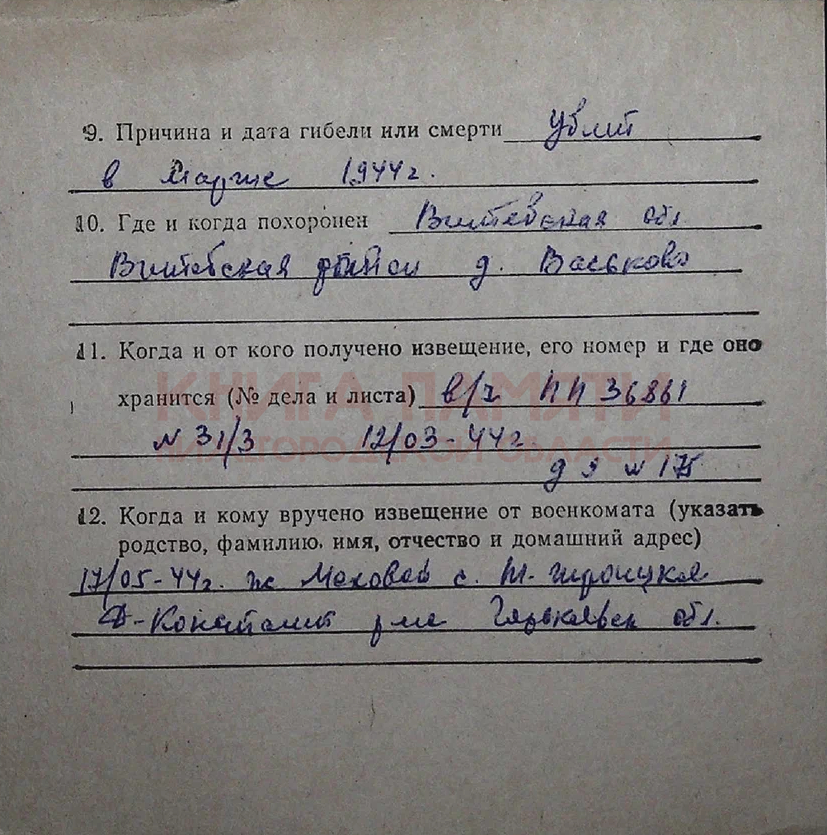 9. Причина и дата гибели или смерти убит
в марте 1944 г.
10. Где и когда похоронен Витебская обл
Витебская район д. Васьково
11. Когда и от кого получено извещение, его номер и где оно
хранится (№ дела и листа) в/ч ПП 36861
КНИГА ПАМЯТИ
N 31/3 12/03-44 г
НИЖЕГОРОДСКОЙ ОБЛАСТИ
д 9 N 175
12. Когда и кому вручено извещение от военкомата (указать
родство, фамилию, имя, отчество и домашний адрес)
17/05-44 г. ж Моховой с. троицкое
Д-Констант р-на Горьковск обл.